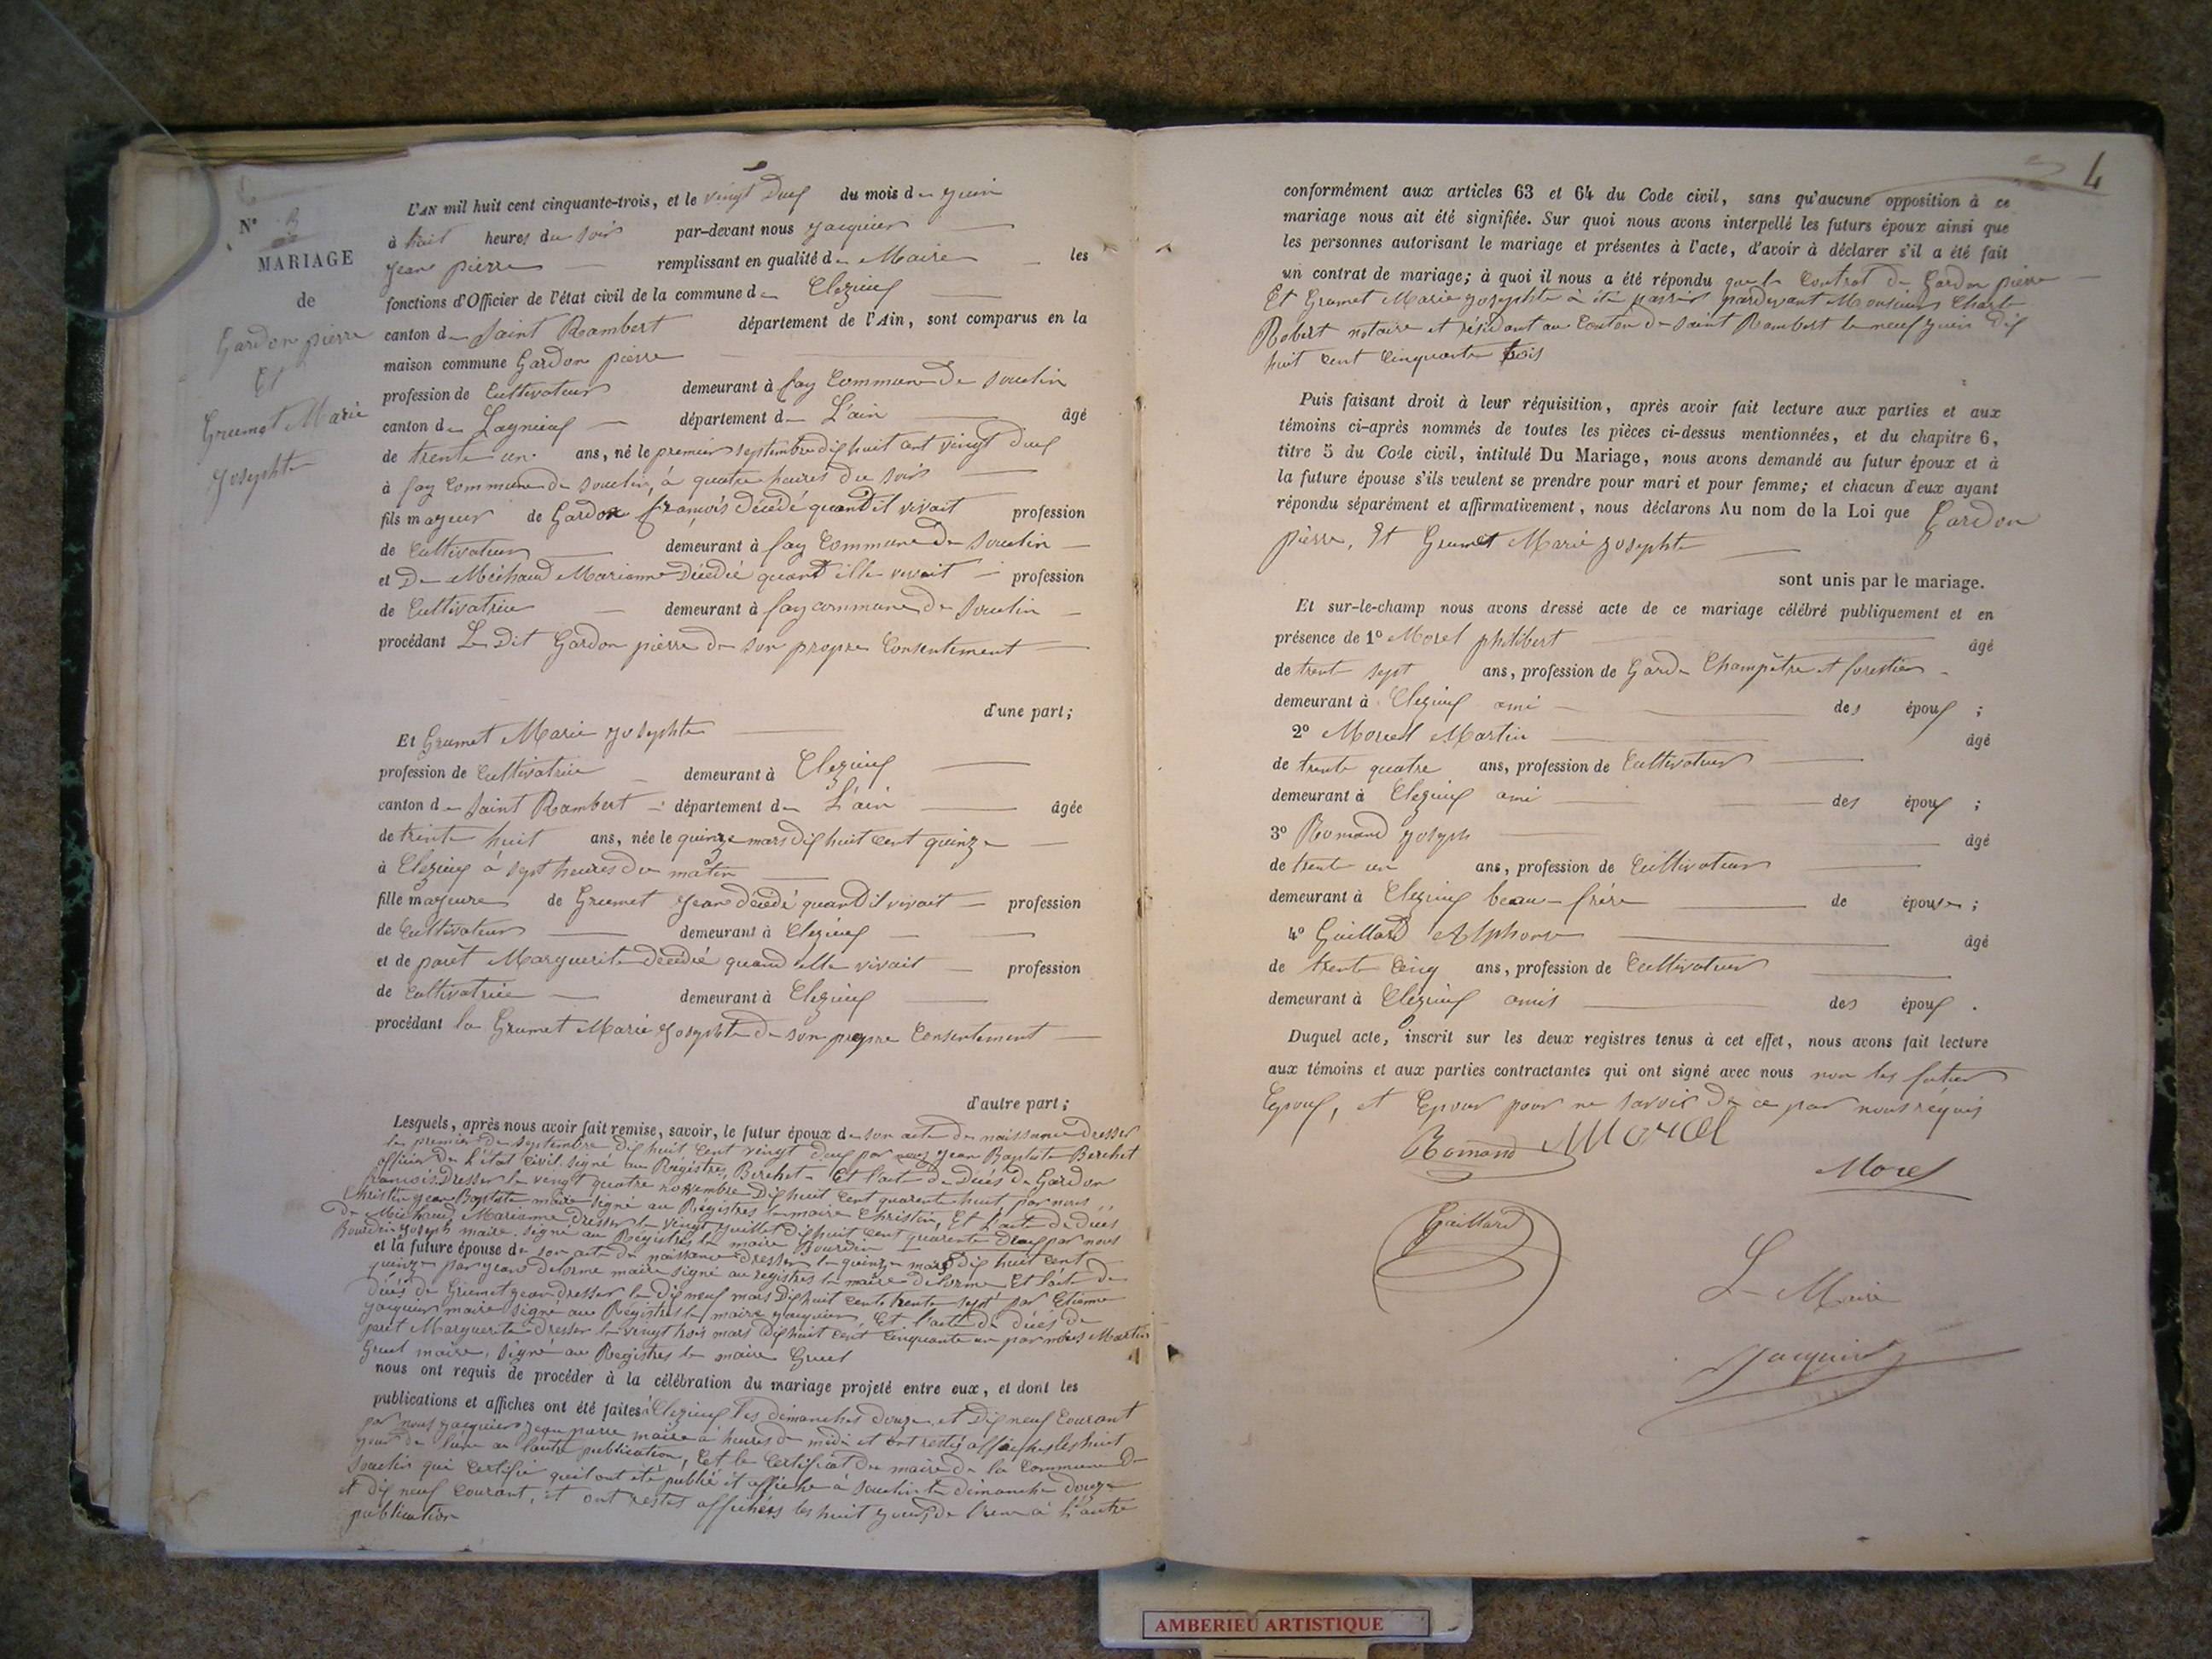 N° 3
MARIAGE
de
Gardon pierre
Et
Grumet Marie
Josephte
L'AN mil huit cent cinquante-trois, et le vingt Deux du mois de juin
à huit heures du soir par-devant nous Jacquier
Jean pierre remplissant en qualité de Maire les
fonctions d'Officier de l'état civil de la commune de Clezieux
canton de Saint Rambert département de l'Ain, sont comparus en la
maison commune Gardon pierre
profession de Cultivateur demeurant à fay Commune de Souclin
canton de Lagnieux département de L'ain âgé
de trente un ans, né le premier septembre dix huit cent vingt deux
à fay Commune de Souclin, à quatre heures du soir
fils majeur de Gardon françois décédé quand il vivait profession
de Cultivateur demeurant à fay Commune de Souclin
et De Michaud Marianne Décédié quand ille vivait profession
de Cultivatrice demeurant à fay commune de Souclin
procédant Le Dit Gardon pierre de son propre Consentement
d'une part;
Et Grumet Marie Josephte
profession de Cultivatrice demeurant à Clezieux
canton de Saint Rambert département de L'ain âgée
de trente huit ans, née le quinze mars dix huit cent quinze
à Clezieux à sept heures du matin
fille majeure de Grumet Jean décédé quand il vivait profession
de Cultivateur demeurant à Clezieux
et de paret Marguerite décédié quand elle vivait profession
de Cultivatrice demeurant à Clezieux
procédant la Grumet Marie Josephte de son propre Consentement
d'autre part;
Lesquels, après nous avoir fait remise, savoir, le futur époux de son acte de naissance dresser
le premier De septembre dix huit Cent vingt deux par nous Jean Baptiste Berchet
officier De L'état Civil. signé au Régistres, Berchet. Et l'acte de Décès De Gardon
françois Dresser le vingt quatre novembre Dix huit Cent quarente huit, par nous
Christin Jean Baptiste maire signé au Régistres le maire Christin, Et L'acte de décès
De Michaud Marianne dresser le vingt juillet Dix huit Cent quarente Deux par nous
Bourdin Joseph maire. signé au Régistres le maire Bourdin
et la future épouse de son acte de naissance dresser le quinze mars dix huit cent
quinze par Jean Delorme maire signé au registres le maire Delorme Et l'acte de
décés de Grumet Jean dresser le Dix neuf mars Dix huit Cents trente sept par Etienne
Jacquier maire signé au Régistres le maire Jacquier, Et l'acte de décés de
paret Marguerite dresser le vingt trois mars dix huit cent Cinquante un par nous Martin
Gruel maire, signé au Registres le maire Gruel
nous ont requis de procéder à la célébration du mariage projeté entre eux, et dont les
publications et affiches ont été faites à Clezieux les dimanches douze et dix neuf Courant
par nous Jacquier Jean pierre maire à heures de midi et ont restés affichés les huit
jour de l'une au l'autre publication, Et le Certificat du maire de la Commune de
Souclin qui Certifie quil ont été publié et affiche à Souclin le dimanche douze
et dix neuf Courant, et ont restés affichés les huit jours, de l'une à l'autre
publication
4
conformément aux articles 63 et 64 du Code civil, sans qu'aucune opposition à ce
mariage nous ait été signifiée. Sur quoi nous avons interpellé les futurs époux ainsi que
les personnes autorisant le mariage et présentes à l'acte, d'avoir à déclarer s'il a été fait
un contrat de mariage; à quoi il nous a été répondu que le Contrat de Gardon pierre
Et Grumet Marie Josephte à été passés pardevant Monsieur Charle
Robert notaire et résidant au Canton de Saint Rambert le neuf juin dix
huit cent Cinquante trois
Puis faisant droit à leur réquisition, après avoir fait lecture aux parties et aux
témoins ci-après nommés de toutes les pièces ci-dessus mentionnées, et du chapitre 6,
titre 5 du Code civil, intitulé Du Mariage, nous avons demandé au futur époux et à
la future épouse s'ils veulent se prendre pour mari et pour femme; et chacun d'eux ayant
répondu séparément et affirmativement, nous déclarons Au nom de la Loi que Gardon
pierre, Et Grumet Marie Josephte
sont unis par le mariage.
Et sur-le-champ nous avons dressé acte de ce mariage célébré publiquement et en
présence de 1° Morel philibert âgé
de trente sept ans, profession de Garde Champêtre et forestier
demeurant à Clezieux ami des époux ;
2° Morel Martin âgé
de trente quatre ans, profession de Cultivateur
demeurant à Clezieux ami des époux ;
3° Romand Joseph âgé
de trente un ans, profession de Cultivateur
demeurant à Clezieux beau-frére de épouse ;
4° Gaillard Alphonse âgé
de trente Cinq ans, profession de Cultivateur
demeurant à Clezieux amis des époux .
Duquel acte, inscrit sur les deux registres tenus à cet effet, nous avons fait lecture
aux témoins et aux parties contractantes qui ont signé avec nous non les futur
Epoux, et Epouse pour ne savoir De ce par nous réquis
Romand Morel
Morel
Gaillard
Le Maire
Jacquier
AMBERIEU ARTISTIQUE